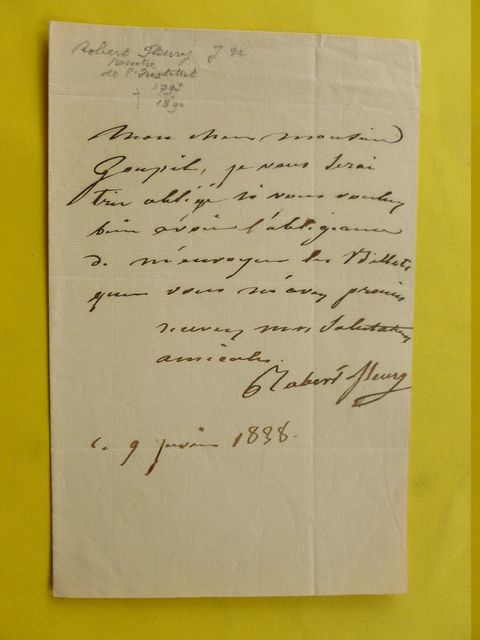 Robert Fleury J N
peintre
de l'Institut
1797
† 1890
Mon cher monsieur
Goupil, je vous serai
très obligé si vous voulez
bien avoir l'obligeance
de m'envoyer les Billets
que vous m'avez promis
recevez mes salutations
amicales.
Robert Fleury
Ce 9 1838.